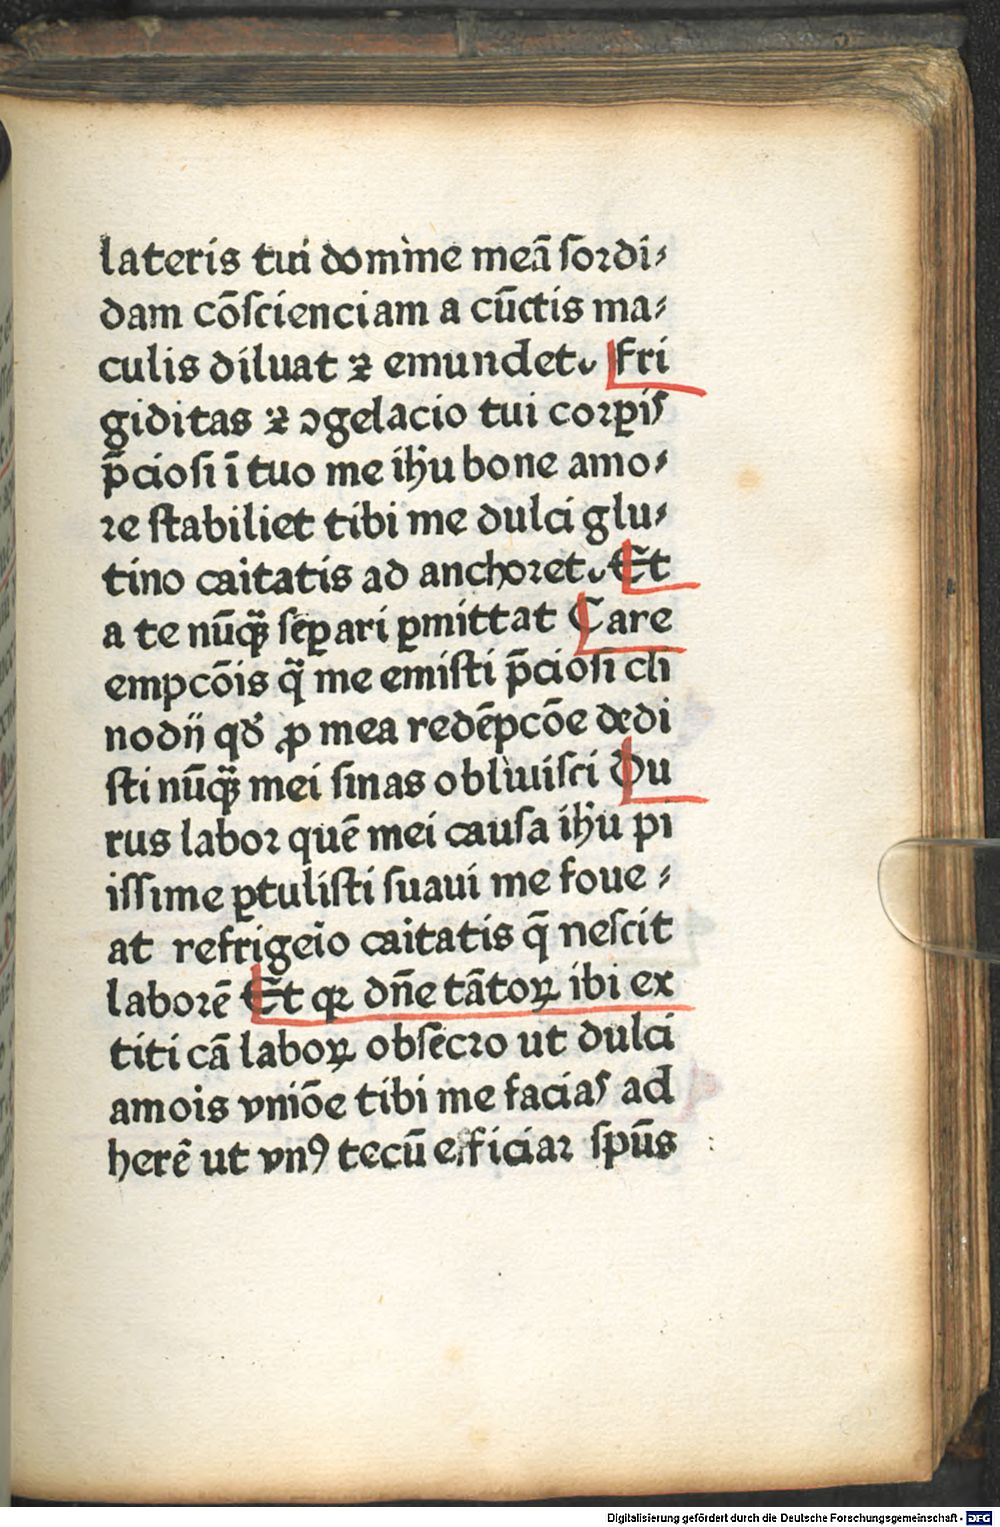 lateris tui domine meā ſoꝛdi⸗
dam cōſcienciam a cūctis ma⸗
culis diluat ⁊ emundet. Fri
giditas ⁊ ꝯgelacio tui coꝛꝑis
p̄cioſi ī tuo me ih̄u bone amo⸗
ꝛe ſtabiliet tibi me dulci glu⸗
tino caitatis ad anchoꝛet. Et
a te nūqᷓꝫ ſeꝑari ꝑmittat Care
empcōis qᷓ me emiſti p̄cioſi cli
nodij qď ꝓ mea redēpcōe dedi
ſti nūqᷓꝫ mei ſinas obliuiſci Du
rus laboꝛ quē mei cauſa ih̄u pi
iſſime ꝑtuliſti ſuaui me foue ⸗
at refrigeio caitatis q̄ neſcit
laboꝛē Et qꝛ dn̄e tātoꝝ ibi ex
titi cā laboꝝ obſecro ut dulci
amois vniōe tibi me facias ad
herē ut vnꝰ tecū efficiaꝛ ſpūs :
Digitalisierung gefördert durch die Deutsche Forschungsgemeinschaft - DFG